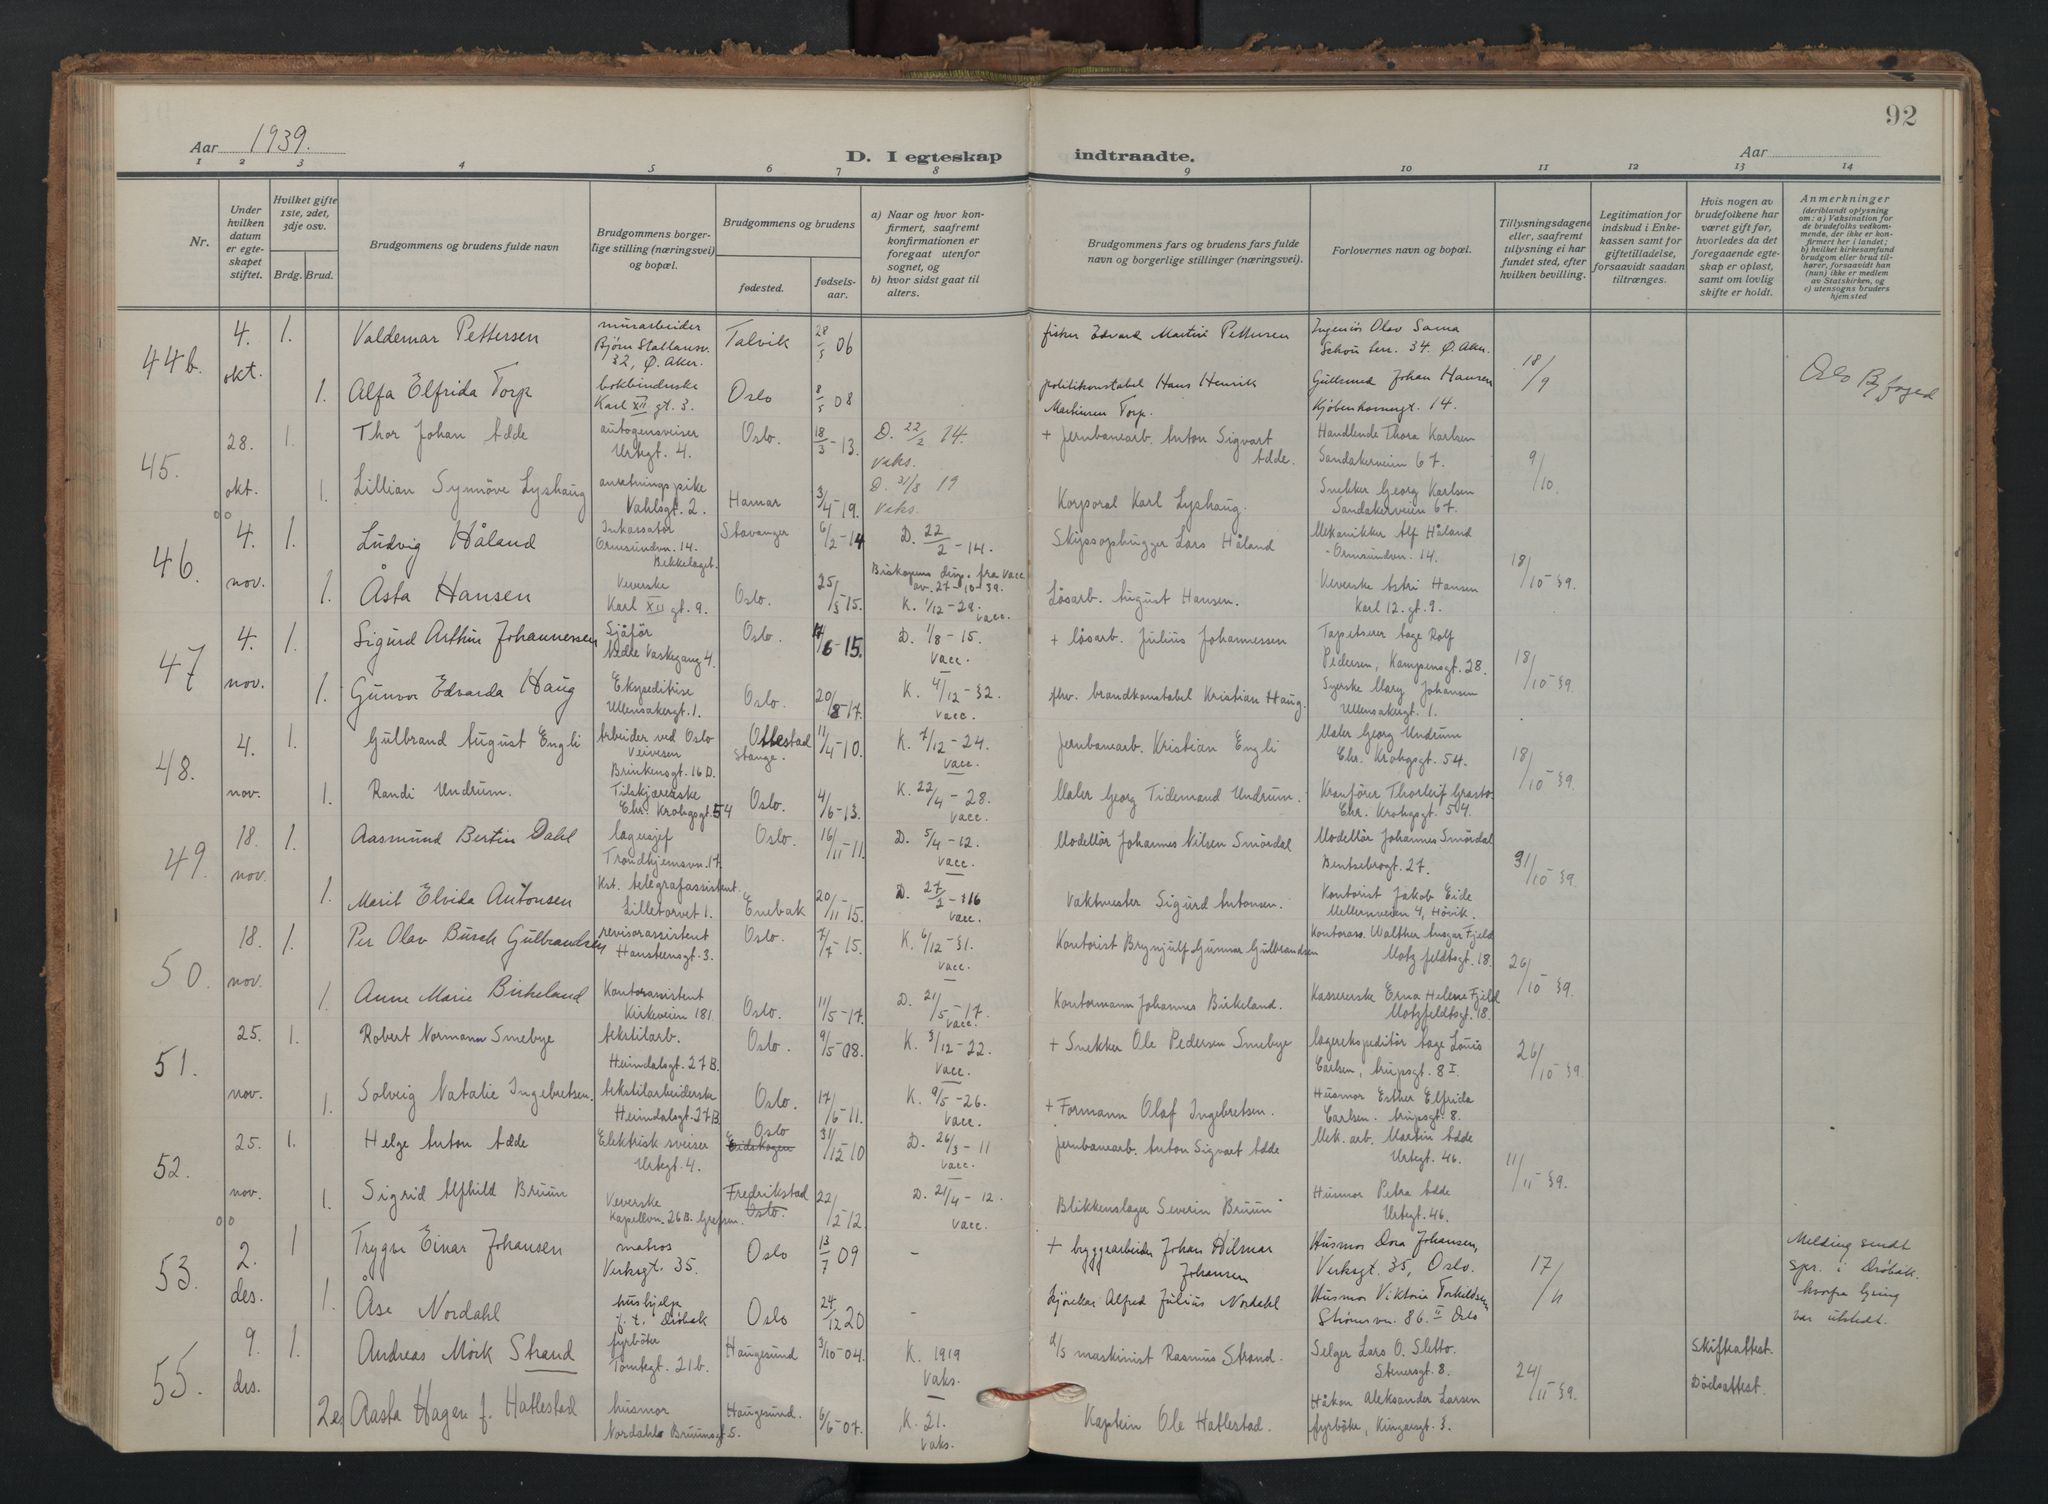 92
Aar 1939.
D. I egteskap indtraadte.
Aar
1 2 3 4 5 6 7 8 9 10 11 12 13 14
Nr.
Under hvilken datum er egteskapet stiftet.
Hvilket gifte 1ste, 2det, 3dje osv.
Brdg. Brud.
Brudgommens og brudens fulde navn
Brudgommens borgerlige stilling (næringsvei) og bopæl.
Brudgommens og brudens
fødested.
fødselsaar.
a) Naar og hvor konfirmert, saafremt konfirmationen er foregaat utenfor sognet, og
b) hvor sidst gaat til alters.
Brudgommens fars og brudens fars fulde navn og borgerlige stillinger (næringsvei).
Forlovernes navn og bopæl.
Tillysningsdagene eller, saafremt tillysning ei har fundet sted, efter hvilken bevilling.
Legitimation for indskud i Enkekassen samt for giftetilladelse, forsaavidt saadan tiltrænges.
Hvis nogen av brudefolkene har været gift før, hvorledes da det foregaaende egteskap er opløst, samt om lovlig skifte er holdt.
Anmerkninger
(deriblandt oplysning om: a) Vaksination for de brudefolks vedkommende, der ikke er konfirmert her i landet; b) hvilket kirkesamfund brudgom eller brud tilhører, forsaavidt han (hun) ikke er medlem av Statskirken, og c) utensogns bruders hjemsted
44b. 4. okt. 1. Valdemar Pettersen murarbeider Bjørn Stallaresv. 32, Ø. Aker. Talvik 28/5 06 fisker Edvard Martin Pettersen Ingeniør Olav Sama Schou terr. 34. Ø. Aker. 18/9
1. Alfa Elfrida Torp bokbinderske Karl XII gt. 3. Oslo 8/5 08 politikonstabel Hans Henrik Martinsen Torp. Gullsmed Johan Hansen Kjøbenhavngt. 14. Oslo Byfoged
45. 28. okt. 1. Thor Johan Adde autogensveiser Urtegt. 4. Oslo. 18/3-13. D. 22/2 14. vaks. + Jernbanearb. Anton Sigvart Adde. Handlende Thora Karlsen Sandakerveien 67. 9/10
1. Lillian Synnøve Lyshaug anretningspike Vahlsgt. 2. Hamar 3/4-19. D. 31/8 19 vaks. Korporal Karl Lyshaug. Snekker Georg Karlsen Sandakerveien 67.
46. 4. nov. 1. Ludvig Håland Inkassator Ormsundvn. 14. Bekkelaget. Stavanger 6/2-14 D. 22/2-14. Skipsophugger Lars Håland Mekanikker Alf Håland Ormsundvn. 14. 18/10-39.
1. Åsta Hansen Veverske Karl XII gt. 9. Oslo. 25/3-15. Biskopens disp. fra vacc. av. 27-10-39. K. 1/12-29. vacc. Løsarb. August Hansen. Veverske Astri Hansen Karl 12. gt. 9.
47 4. nov. 1. Sigurd Arthur Johannessen Sjåfør Nedre Vaskegang 4. Oslo. 17/6-15. D. 1/8-15. vacc. + løsarb. Julius Johannessen Tapetserer Aage Rolf Pedersen, Kampensgt. 28. 18/10-39.
1. Gunvor Edvarda Haug Ekspeditrise Ullensakergt. 1. Oslo. 20/8-17. K. 4/12-32. vacc. fhv. brandkonstabel Kristian Haug. Syerske Mary Johansen Ullensakergt. 1.
48. 4. nov. 1. Gulbrand August Engli Arbeider ved Oslo Veivesen Brinkensgt. 16 D. Ottestad Stange. 11/4-10. K. 7/12-24. vacc. Jernbanearb. Kristian Engli Maler Georg Undrum Chr. Krohgsgt. 54. 18/10-39.
1. Randi Undrum. Tilskjærerske Chr. Krohgsgt. 54 Oslo. 4/6-13. K. 22/4-28. vacc. Maler Georg Tidemand Undrum. Kranfører Thorleif Chr. Krohgsgt. 54.
49. 18. nov. 1. Aasmund Bertin Dahl lagersjef Trondhjemsvn. 17. Oslo. 16/11-11. D. 5/4-12. vacc. Modellør Johannes Nilsen Smördal Modellør Johannes Smördal Bentsebrogt. 27. 31/10-39.
1. Marit Elvida Antonsen Kst. telegrafassistent. Lilletorvet 1. Enebak 20/11-15. D. 27/2-16 vacc. Vaktmester Sigurd Antonsen. Kontorist Jakob Eide Mellemveien 4, Høvik.
50. 18. nov. 1. Per Olav Busch Gulbrandsen revisorassistent Hansteensgt. 3. Oslo. 7/7-15. K. 6/12-31. vacc. Kontorist Brynjulf Gunnar Gulbrandsen Kontorass. Walther Ansgar Fjeld Motzfeldtsgt. 18. 26/10-39.
1. Anne Marie Birkeland Kontorassistent Kirkeveien 181. Oslo. 11/5-17. D. 21/5-17. vacc. Kontormann Johannes Birkeland. Kassererske Erna Helene Fjeld Motzfeldtsgt. 18.
51. 25. nov. 1. Robert Normann Smebye tekstilarb. Heimdalsgt. 27 B. Oslo. 9/5-08. K. 3/12-22. vacc. + Snekker Ole Pedersen Smebye lagerekspeditør Aage Louis Carlsen, Arupsgt. 8 I. 26/10-39.
1. Solveig Natalie Ingebretsen. tekstilarbeiderske Heimdalsgt. 27 B. Oslo. 17/6-11. K. 9/5-26. vacc. + Formann Olaf Ingebretsen. Husmor Esther Elfrida Carlsen. Arupsgt. 8.
52. 25. nov. 1. Helge Anton Adde Elektrisk sveiser Urtegt. 4. Oslo Eidskogen 31/12 10 D. 26/3-11 vacc. Jernbanearb. Anton Sigvart Adde Mek. arb. Martin Adde Urtegt. 46. 11/11-39.
1. Sigrid Alfhild Bruun Veverske Kapellvn. 26 B. Grefsen. Fredrikstad Oslo. 22/2-12. D. 21/4-12. vacc. Blikkenslager Severin Bruun Husmor Petra Adde Urtegt. 46.
53. 2. des. 1 Trygve Einar Johansen matros Verksgt. 35. Oslo 13/7 09 - + byggearbeider Johan Hilmar Johansen Husmor Dora Johansen, Verksgt. 35, Oslo. 17/11
1. Åse Nordahl hushjelp f. t. Drøbak Oslo 24/12 20 - kjørekar Alfred Julius Nordahl Husmor Viktoria Torkildsen Strømsvn. 86 II Oslo Melding sendt spr. i Drøbak. hvorfra lysing var utstedt.
55. 9. des. 1. Andreas Mörk Strand fyrbøter Tomtegt. 21 b. Haugesund 3/10-04. K. 1919 Vaks. d/s maskinist Rasmus Strand. Selger Lars O. Sletto. Stenersgt. 8. 24/11-39. Skifteattest. Dødsattest.
2en Aasta Hagen f. Hatlestad husmor Nordahl Bruunsgt 5. Haugesund. 6/6-07. K. 21. vaks. Kaptein Ole Hatlestad. Håkon Aleksander Larsen fyrbøter, Kingosgt. 3.